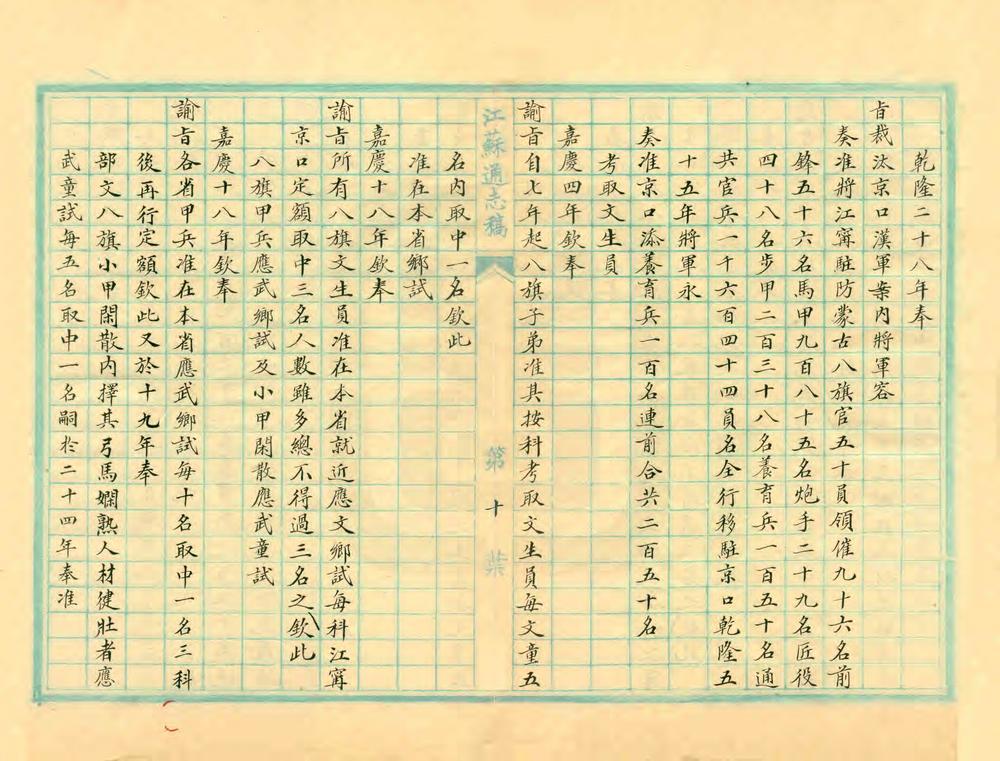 乾隆二十八年奉
旨裁汰京口漢軍案內將軍容
奏准將江甯駐防蒙古八旗官五十員領催九十六名前
鋒五十六名馬甲九百八十五名炮手二十九名匠役
四十八名步甲二百三十八名養育兵一百五十名通
共官兵一千六百四十四員名全行移駐京口乾隆五
十五年將軍永
奏准京口添養育兵一百名連前合共二百五十名
考取文生員
嘉慶四年欽奉
諭旨自七年起八旗子弟准其按科考取文生員每文童五
江蘇通志稿 第十葉
名內取中一名欽此
准在本省鄉試
嘉慶十八年欽奉
諭旨所有八旗文生員准在本省就近應文鄉試每科江甯
京口定額取中三名人數雖多總不得過三名之欽此
八旗甲兵應武鄉試及小甲閑散應武童試
嘉慶十八年欽奉
諭旨各省甲兵准在本省應武鄉試每十名取中一名三科
後再行定額欽此又於十九年奉
部文八旗小甲閑散內擇其弓馬嫻熟人材健壯者應
武童試每五名取中一名嗣於二十四年奉准